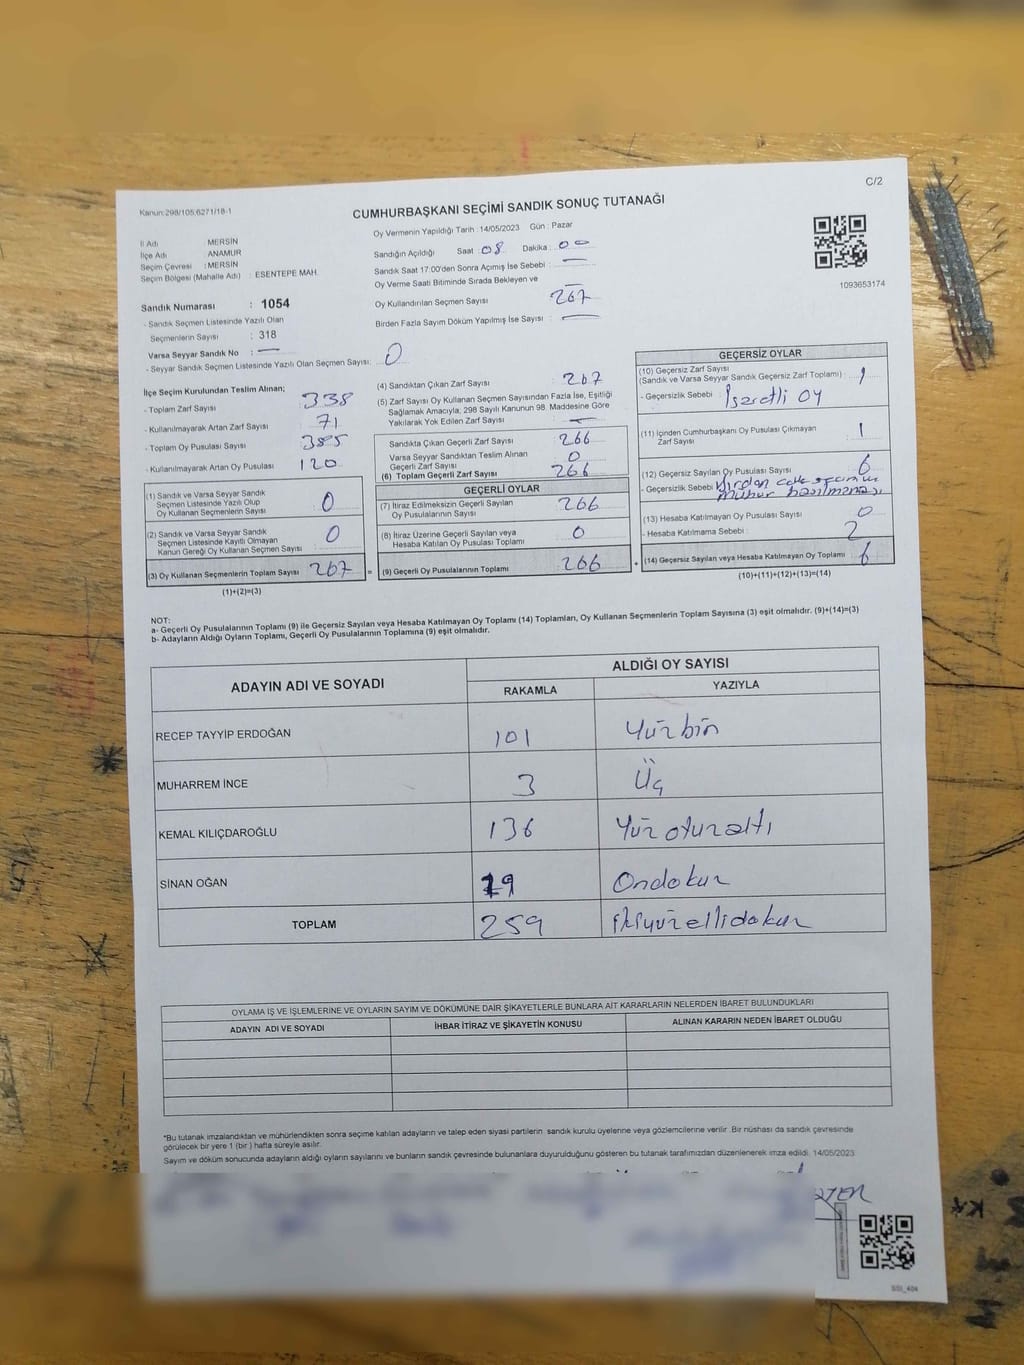 C/2
Kanun:298/105;6271/18-1
CUMHURBAŞKANI SEÇİMİ SANDIK SONUÇ TUTANAĞI
İl Adı : MERSİN
İlçe Adı : ANAMUR
Seçim Çevresi : MERSİN
Seçim Bölgesi (Mahalle Adı) : ESENTEPE MAH.
Sandık Numarası : 1054
- Sandık Seçmen Listesinde Yazılı Olan
Seçmenlerin Sayısı : 318
Varsa Seyyar Sandık No : —
- Seyyar Sandık Seçmen Listesinde Yazılı Olan Seçmen Sayısı: 0
Oy Vermenin Yapıldığı Tarih : 14/05/2023 Gün : Pazar
Sandığın Açıldığı Saat : 08 Dakika : 00
Sandık Saat 17:00'den Sonra Açımış İse Sebebi : —
Oy Verme Saati Bitiminde Sırada Bekleyen ve
Oy Kullandırılan Seçmen Sayısı 267
Birden Fazla Sayım Döküm Yapılmış İse Sayısı : —
1093653174
İlçe Seçim Kurulundan Teslim Alınan;
- Toplam Zarf Sayısı : 338
- Kullanılmayarak Artan Zarf Sayısı : 71
- Toplam Oy Pusulası Sayısı : 385
- Kullanılmayarak Artan Oy Pusulası : 120
(1) Sandık ve Varsa Seyyar Sandık
Seçmen Listesinde Yazılı Olup
Oy Kullanan Seçmenlerin Sayısı : 0
(2) Sandık ve Varsa Seyyar Sandık
Seçmen Listesinde Kayıtlı Olmayan
Kanun Gereği Oy Kullanan Seçmen Sayısı : 0
(3) Oy Kullanan Seçmenlerin Toplam Sayısı : 267
(1)+(2)=(3)
=
(4) Sandıktan Çıkan Zarf Sayısı : 267
(5) Zarf Sayısı Oy Kullanan Seçmen Sayısından Fazla İse, Eşitliği
Sağlamak Amacıyla; 298 Sayılı Kanunun 98. Maddesine Göre
Yakılarak Yok Edilen Zarf Sayısı : —
Sandıkta Çıkan Geçerli Zarf Sayısı : 266
Varsa Seyyar Sandıktan Teslim Alınan
Geçerli Zarf Sayısı : 0
(6) Toplam Geçerli Zarf Sayısı : 266
GEÇERLİ OYLAR
(7) İtiraz Edilmeksizin Geçerli Sayılan
Oy Pusulalarının Sayısı : 266
(8) İtiraz Üzerine Geçerli Sayılan veya
Hesaba Katılan Oy Pusulası Toplamı : 0
(9) Geçerli Oy Pusulalarının Toplamı : 266
+
GEÇERSİZ OYLAR
(10) Geçersiz Zarf Sayısı
(Sandık ve Varsa Seyyar Sandık Geçersiz Zarf Toplamı) : 1
- Geçersizlik Sebebi : İşaretli oy
(11) İçinden Cumhurbaşkanı Oy Pusulası Çıkmayan
Zarf Sayısı : 1
(12) Geçersiz Sayılan Oy Pusulası Sayısı : 6
- Geçersizlik Sebebi
(13) Hesaba Katılmayan Oy Pusulası Sayısı : 0
- Hesaba Katılmama Sebebi : 2
(14) Geçersiz Sayılan veya Hesaba Katılmayan Oy Toplamı : 6
(10)+(11)+(12)+(13)=(14)
NOT:
a- Geçerli Oy Pusulalarının Toplamı (9) ile Geçersiz Sayılan veya Hesaba Katılmayan Oy Toplamı (14) Toplamları, Oy Kullanan Seçmenlerin Toplam Sayısına (3) eşit olmalıdır. (9)+(14)=(3)
b- Adayların Aldığı Oyların Toplamı, Geçerli Oy Pusulalarının Toplamına (9) eşit olmalıdır.
ADAYIN ADI VE SOYADI
ALDIĞI OY SAYISI
RAKAMLA YAZIYLA
RECEP TAYYİP ERDOĞAN 101 Yüzbin
MUHARREM İNCE 3 Üç
KEMAL KILIÇDAROĞLU 136 Yüz otuz altı
SİNAN OĞAN 19 Ondokuz
TOPLAM 259 ikiyüzellidokuz
OYLAMA İŞ VE İŞLEMLERİNE VE OYLARIN SAYIM VE DÖKÜMÜNE DAİR ŞİKAYETLERLE BUNLARA AİT KARARLARIN NELERDEN İBARET BULUNDUKLARI
ADAYIN ADI VE SOYADI İHBAR İTİRAZ VE ŞİKAYETİN KONUSU ALINAN KARARIN NEDEN İBARET OLDUĞU
*Bu tutanak imzalandıktan ve mühürlendikten sonra seçime katılan adayların ve talep eden siyasi partilerin sandık kurulu üyelerine veya gözlemcilerine verilir. Bir nüshası da sandık çevresinde
görülecek bir yere 1 (bir ) hafta süreyle asılır.
Sayım ve döküm sonucunda adayların aldığı oyların sayılarını ve bunların sandık çevresinde bulunanlara duyurulduğunu gösteren bu tutanak tarafımızdan düzenlenerek imza edildi. 14/05/2023
SSI_404